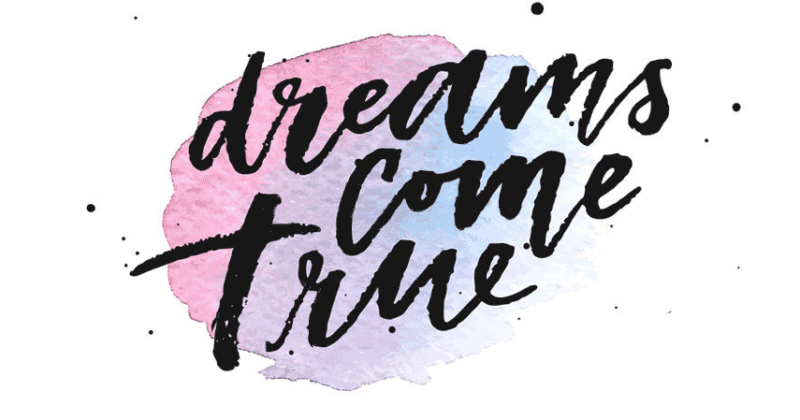 dreams
come
true